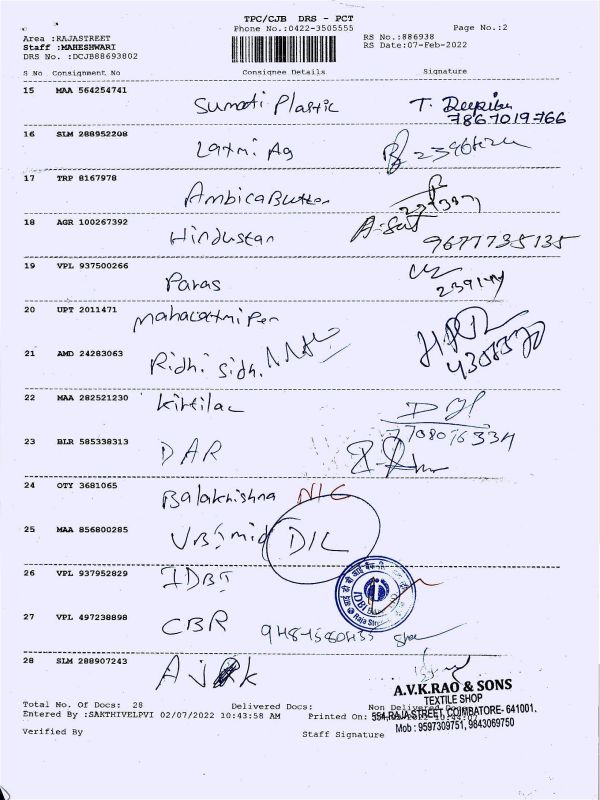 TPC/CJB DRS - PCT
Phone No.:0422-3505555
Page No.:2
Area :RAJASTREET
Staff :MAHESHWARI
DRS No. :DCJB88693802
RS No.:886938
RS Date:07-Feb-2022
S No Consignment No Consignee Details Signature
15 MAA 564254741 Sumati Plastic T.
7867019766
16 SLM 288952208 Laxmi Ag
17 TRP 8167978 Ambica Button
18 AGR 100267392 Hindustan
9677735135
19 VPL 937500266 Paras
20 UPT 2011471 Mahalaxmi Pen
21 AMD 24283063 Ridhi Sidhi
22 MAA 282521230 Kirtilal
23 BLR 585338313 DAR
24 OTY 3681065 Balakrishna
25 MAA 856800285 DIL
26 VPL 937952829 IDBI
27 VPL 497238898 CBR
28 SLM 288907243
A.V.K.RAO & SONS
TEXTILE SHOP
554, RAJA STREET, COIMBATORE- 641001.
Mob : 9597309751, 9843069750
Total No. Of Docs: 28 Delivered Docs: Non Delivered Docs:
Entered By :SAKTHIVELPVI 02/07/2022 10:43:58 AM Printed On:
Verified By Staff Signature